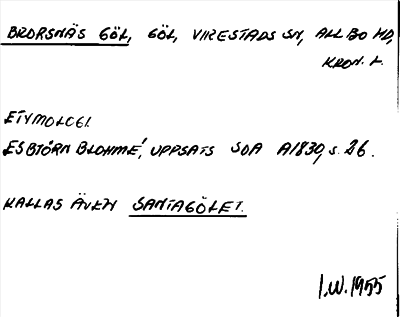 BRORSNÄS GÖL, GÖL, VIRESTADS SN, ALLBO HD,
KRON. L.
ETYMOLOGI.
ESBJÖRN BLOHMÉ, UPPSATS SOA A1830, S. 26.
KALLAS ÄVEN SANTAGÖLET.
I.W. 1955